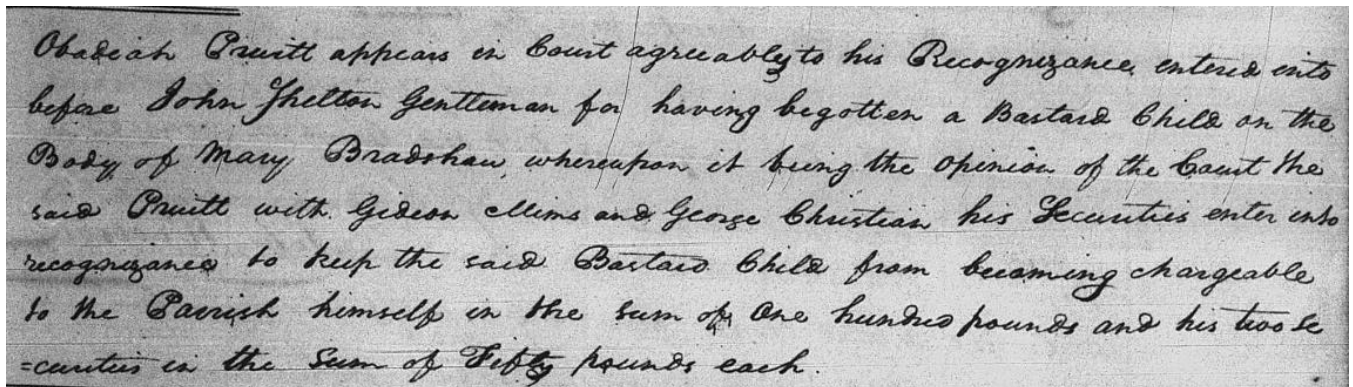 Obadiah Pruitt appears in Court agreeably to his Recognizance entered into
before John Shelton Gentleman for having begotten a Bastard Child on the
Body of Mary Bradshaw whereupon it being the opinion of the Court the
said Pruitt with Gideon Mims and George Christian his Securities enter into
recognizance to keep the said Bastard Child from becoming chargeable
to the Parrish himself in the sum of One hundred pounds and his two Se
=curities in the Sum of Fifty pounds each.